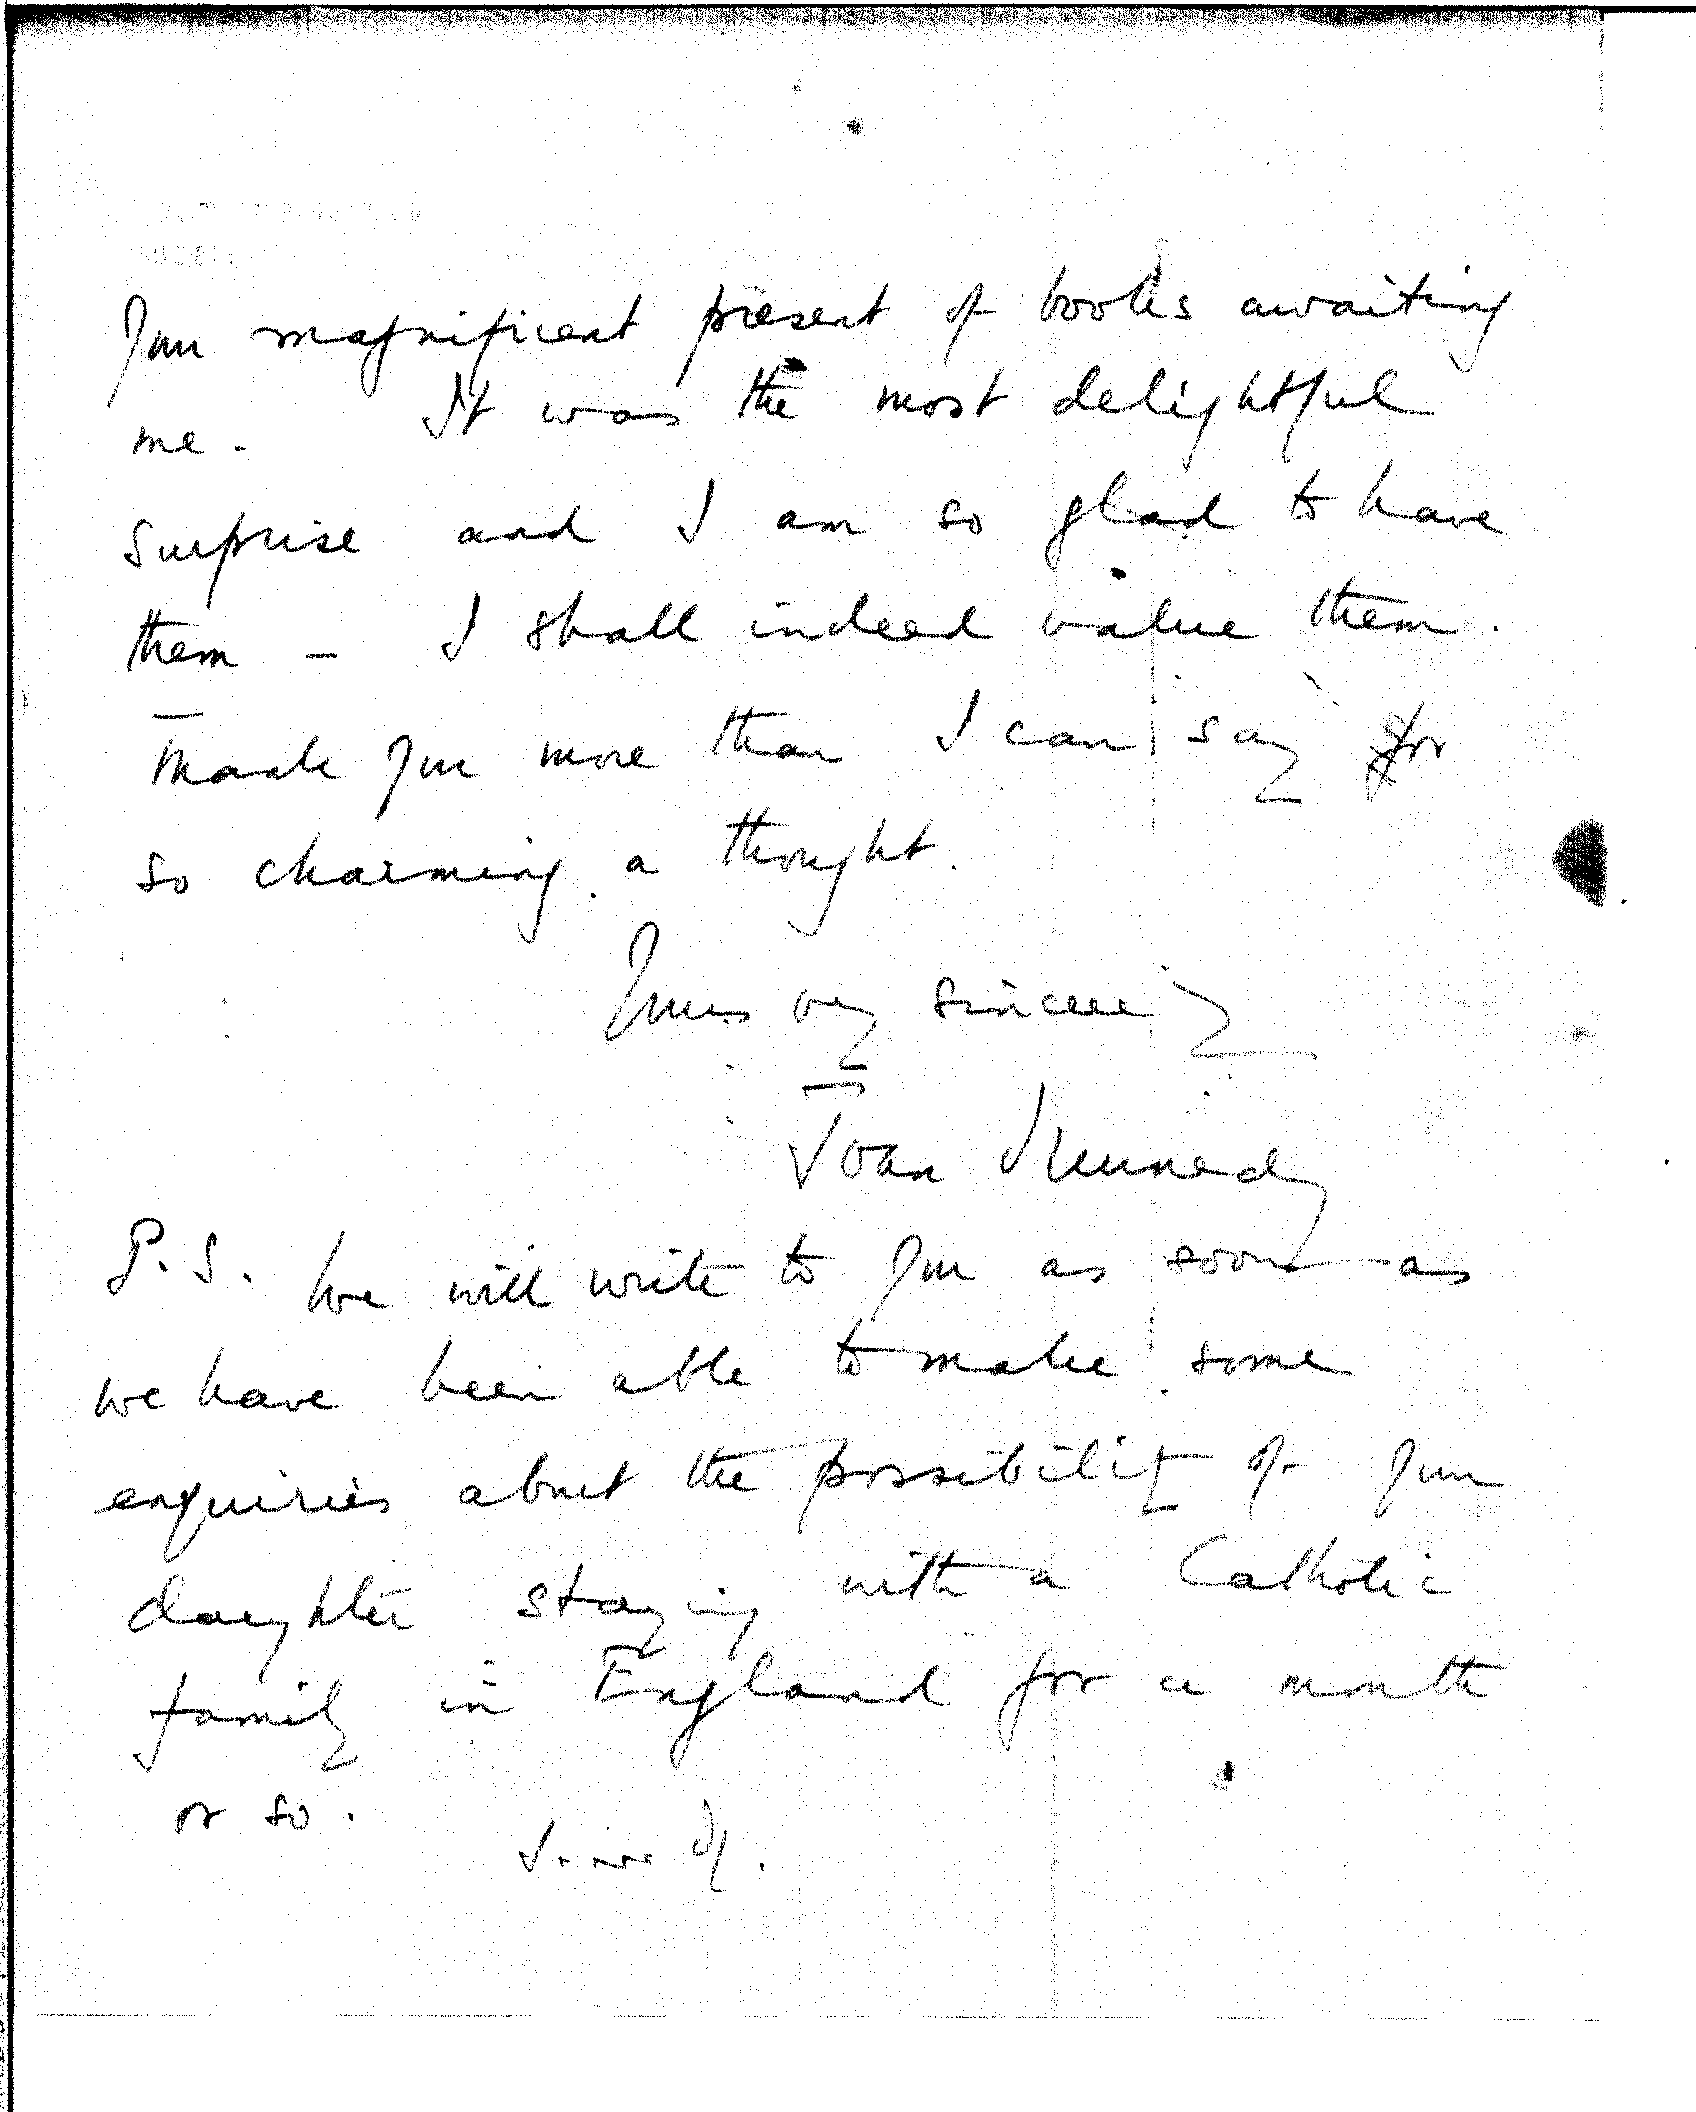 your magnificent present of books awaiting
me. It was the most delightful
surprise and I am so glad to have
them - I shall indeed value them.
Thank you more than I can say for
so charming a thought.
Yours very sincerely
Joan
P.S. We will write to you as soon as
we have been able to make some
enquiries about the possibility of your
daughter staying with a Catholic
family in England for a month
or so.